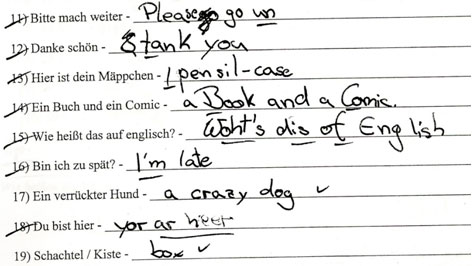 11) Bitte mach weiter - Please go go un
12) Danke schön - Stank you
13) Hier ist dein Mäppchen - 1 pensil-case
14) Ein Buch und ein Comic - a Book and a Comic.
15) Wie heißt das auf englisch? - Woht's dis of English
16) Bin ich zu spät? - I'm late
17) Ein verrückter Hund - a crazy dog ✓
18) Du bist hier - yor ar hier
19) Schachtel / Kiste - box ✓